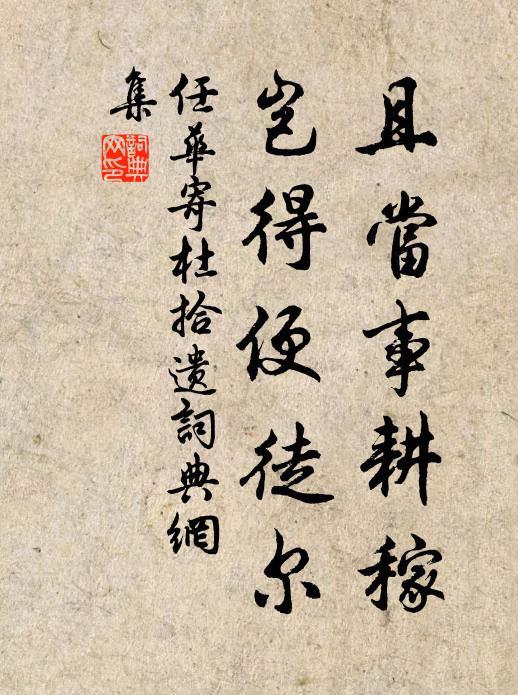 且當事耕稼
豈得便徒尔
任華寄杜拾遺詞典網
集
詞典
网印